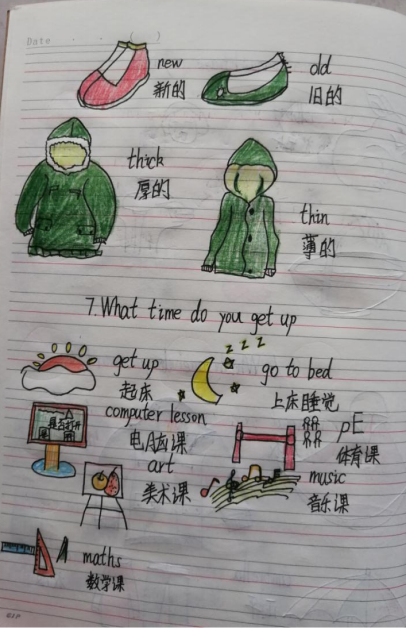 Date
new
新的
old
旧的
thick
厚的
thin
薄的
7. What time do you get up
z z z
get up
起床
go to bed
上床睡觉
computer lesson
电脑课
PE
体育课
art
美术课
music
音乐课
maths
数学课